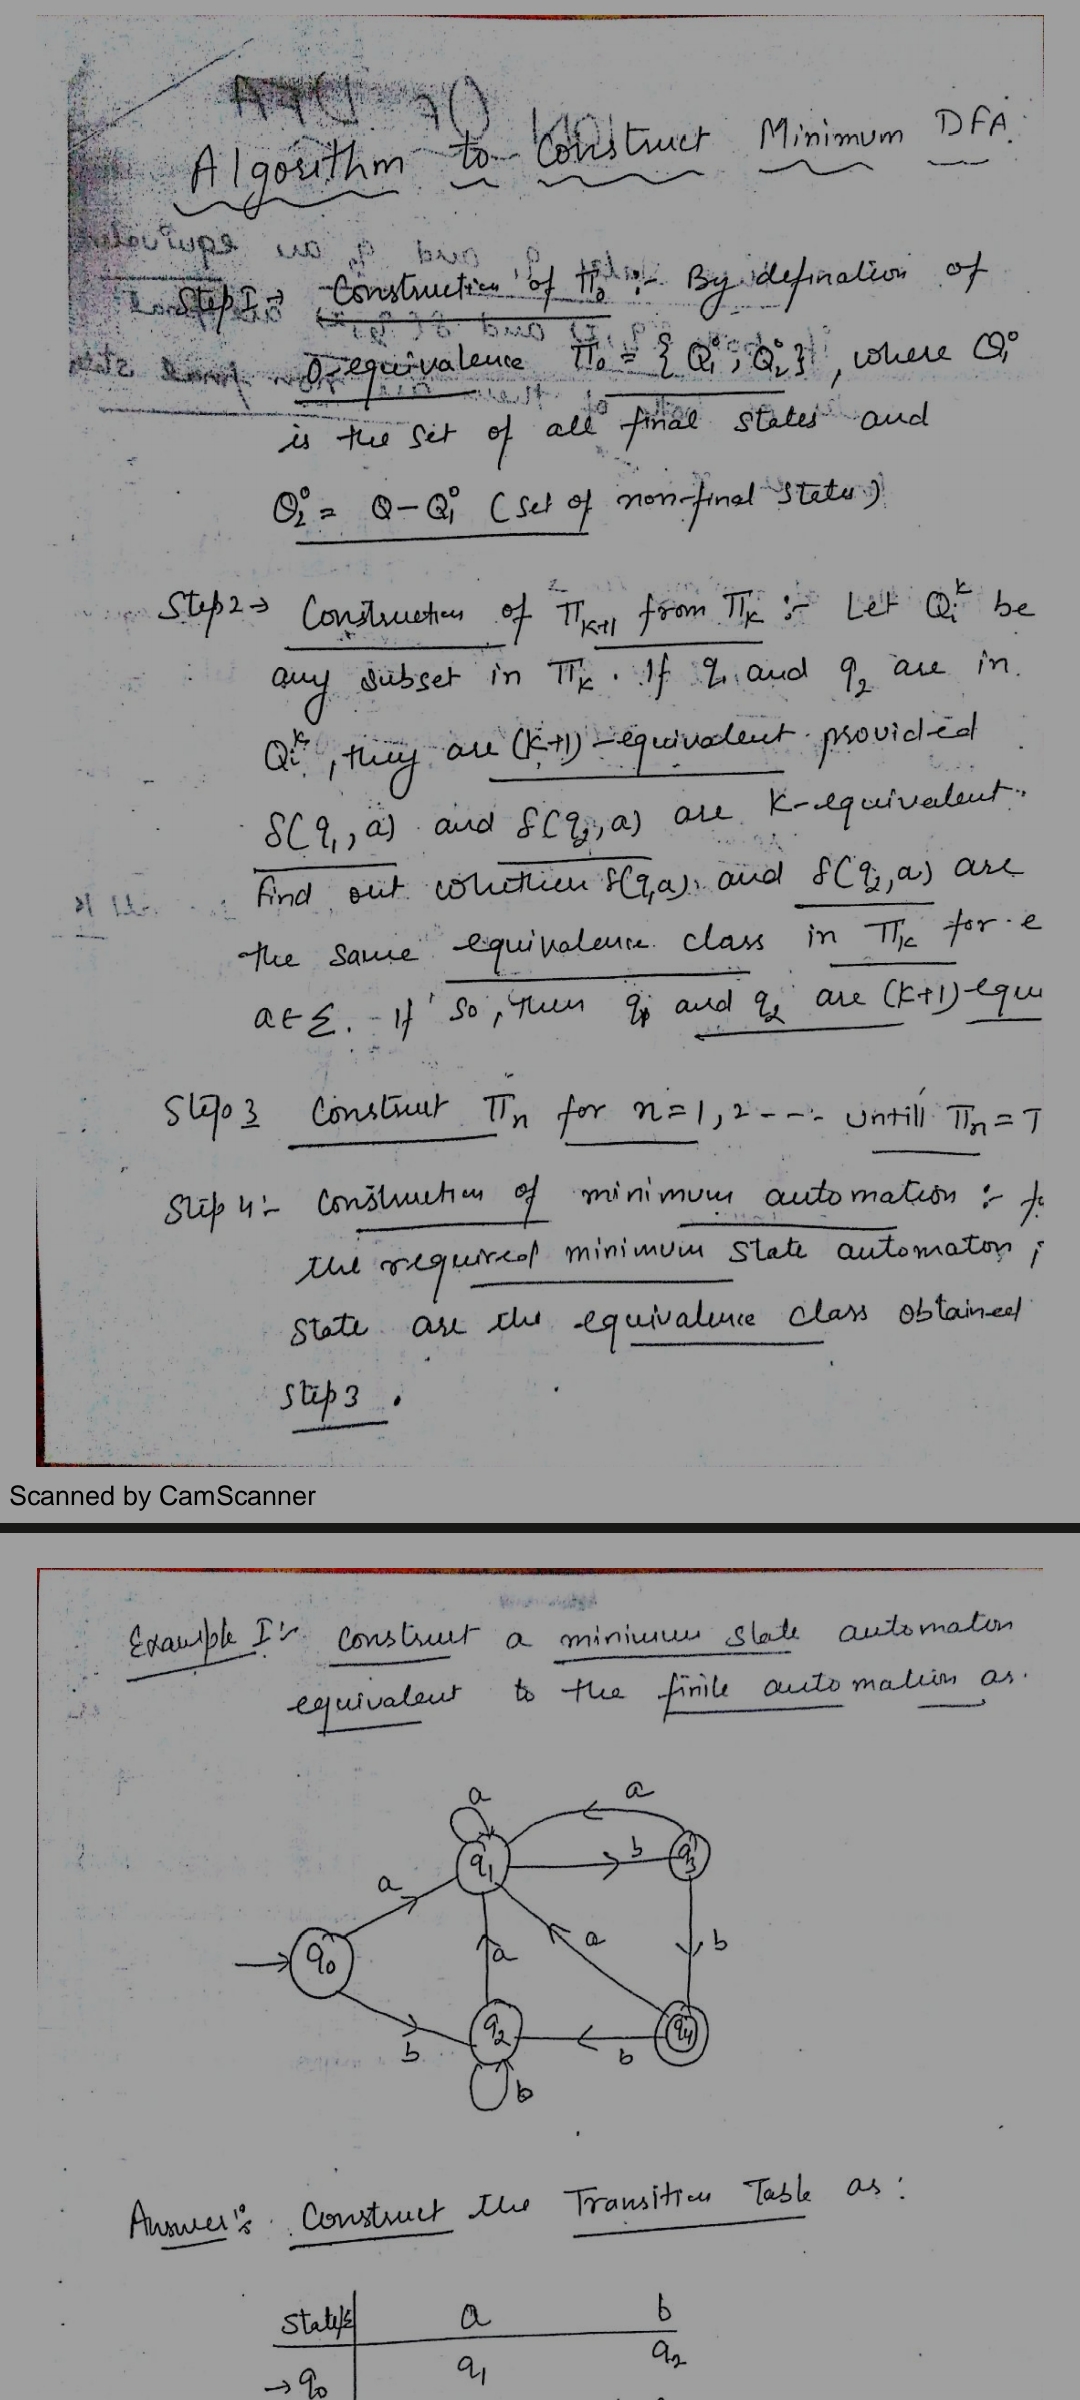 Algorithm to Construct Minimum DFA:
Step I → Construction of π₀ :- By defination of
0-equivalence π₀ = { Q₁⁰, Q₂⁰ } , where Q₁⁰
is the set of all final states and
Q₂⁰ = Q - Q₁⁰ ( set of non-final states )
Step 2 → Construction of πₖ₊₁ from πₖ :- Let Qᵢᵏ be
any subset in πₖ . If q₁ and q₂ are in
Qᵢᵏ , they are (k+1) - equivalent provided
δ(q₁, a) and δ(q₂, a) are k-equivalent.
find out whether δ(q₁,a) and δ(q₂, a) are
the same equivalence class in πₖ for e
a ∈ Σ. If so, then q₁ and q₂ are (k+1)-equi
Step 3 Construct πₙ for n = 1, 2 ---- untill πₙ = π
Step 4 :- Construction of minimum automation :- fo
the required minimum state automaton ,
state are the equivalence class obtained
Step 3 .
Scanned by CamScanner
Example I :- Construct a minimum state automaton
equivalent to the finite automation as.
a a
q₁ b q₃
a
q₀ a a b
q₂ q₄
b b
b
Answer :- Construct the Transition Table as :
State/Σ a b
→ q₀ q₁ q₂